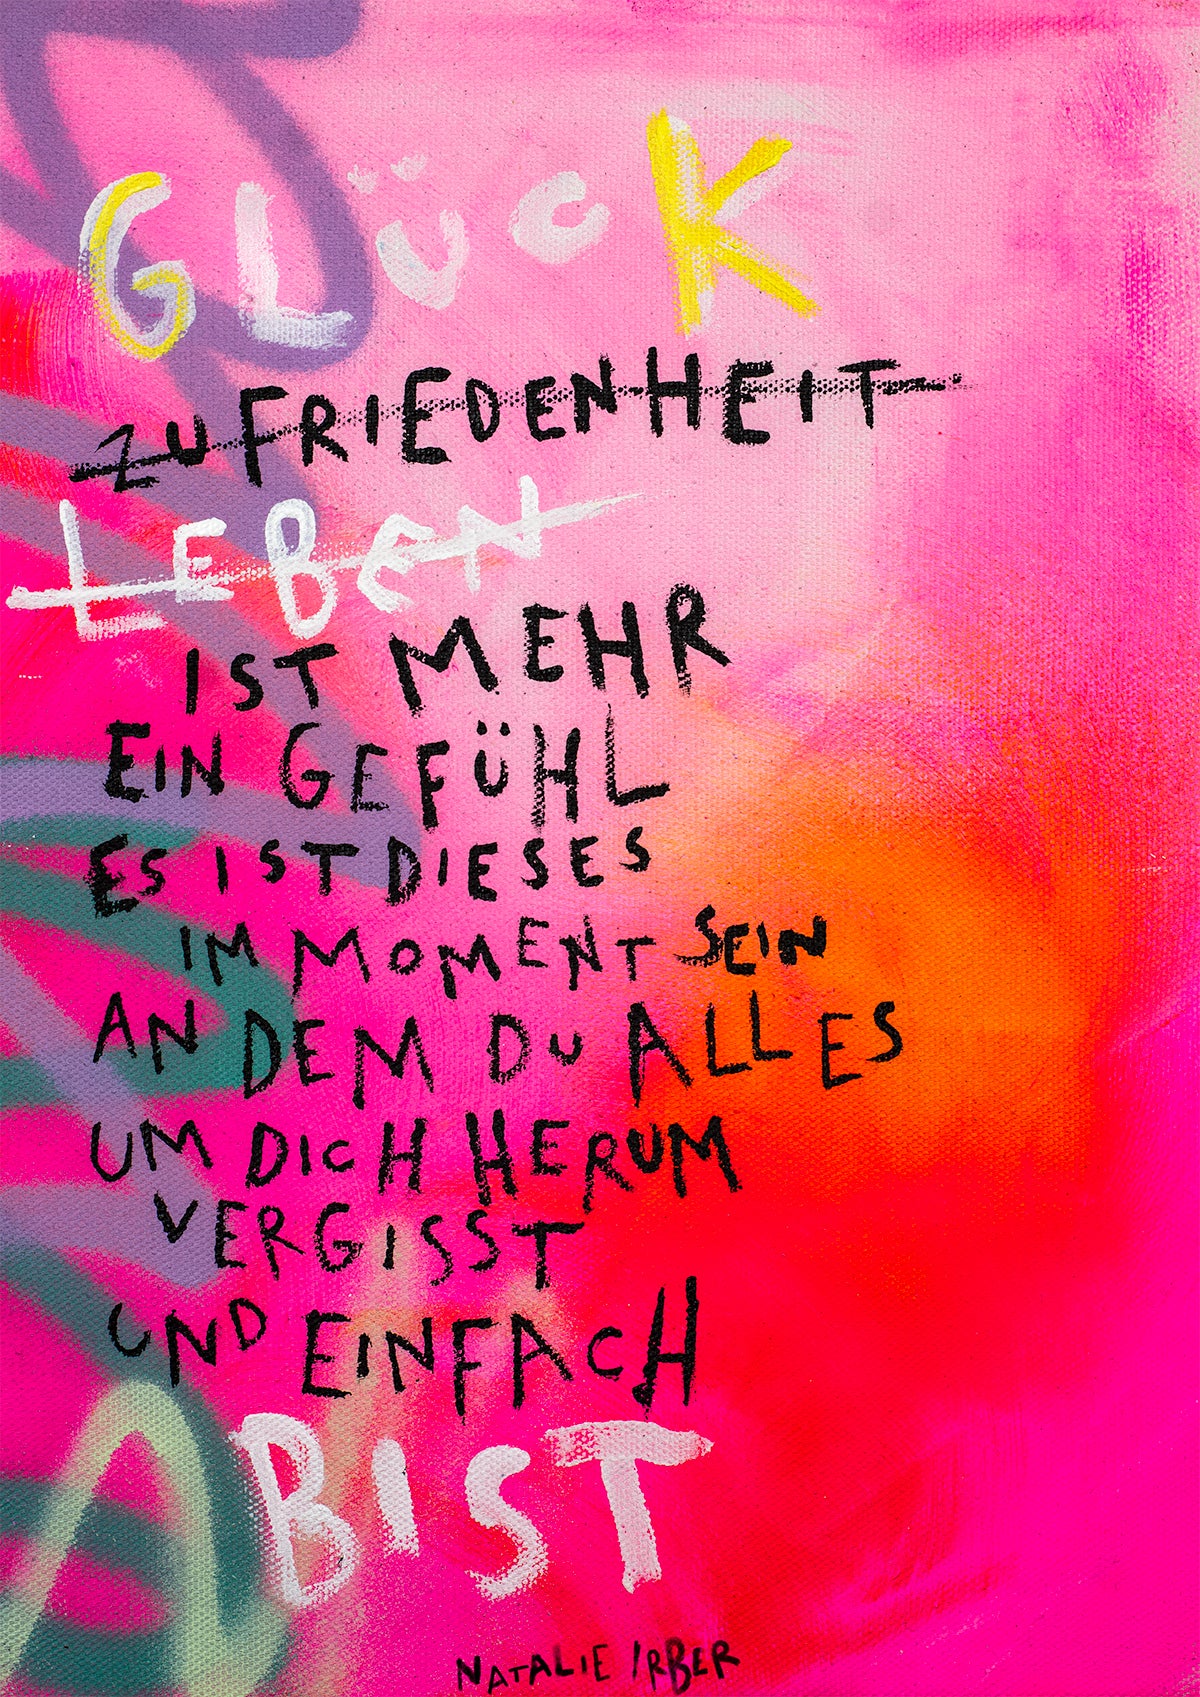 GLÜCK
ZUFRIEDENHEIT
LEBEN
IST MEHR
EIN GEFÜHL
ES IST DIESES
IM MOMENT SEIN
AN DEM DU ALLES
UM DICH HERUM
VERGISST
UND EINFACH
BIST
NATALIE IRBER